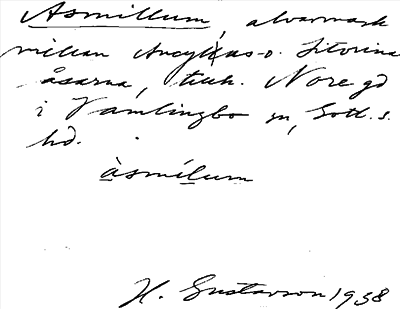 Asmillum, alvarmark
mellan Ancylus- o. Litorina
åsarna, tillh. Nore gd
i Vamlingbo sn, Gotl. s.
hd.
àsmílum
H. Gustavson 1938